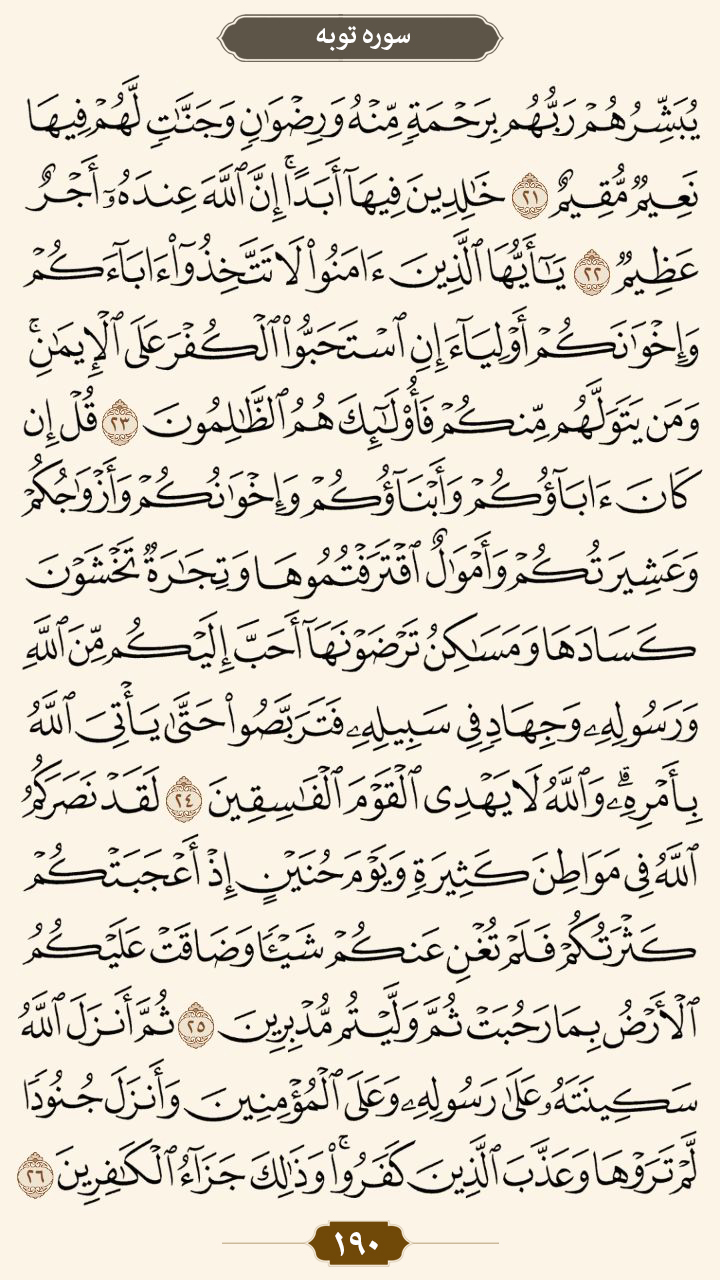 سوره توبه
يُبَشِّرُهُمْ رَبُّهُم بِرَحْمَةٍ مِّنْهُ وَرِضْوَٰنٍ وَجَنَّٰتٍ لَّهُمْ فِيهَا
نَعِيمٌ مُّقِيمٌ ٢١ خَٰلِدِينَ فِيهَآ أَبَدًا ۚ إِنَّ ٱللَّهَ عِندَهُۥٓ أَجْرٌ
عَظِيمٌ ٢٢ يَٰٓأَيُّهَا ٱلَّذِينَ ءَامَنُوا۟ لَا تَتَّخِذُوٓا۟ ءَابَآءَكُمْ
وَإِخْوَٰنَكُمْ أَوْلِيَآءَ إِنِ ٱسْتَحَبُّوا۟ ٱلْكُفْرَ عَلَى ٱلْإِيمَٰنِ ۚ
وَمَن يَتَوَلَّهُم مِّنكُمْ فَأُو۟لَٰٓئِكَ هُمُ ٱلظَّٰلِمُونَ ٢٣ قُلْ إِن
كَانَ ءَابَآؤُكُمْ وَأَبْنَآؤُكُمْ وَإِخْوَٰنُكُمْ وَأَزْوَٰجُكُمْ
وَعَشِيرَتُكُمْ وَأَمْوَٰلٌ ٱقْتَرَفْتُمُوهَا وَتِجَٰرَةٌ تَخْشَوْنَ
كَسَادَهَا وَمَسَٰكِنُ تَرْضَوْنَهَآ أَحَبَّ إِلَيْكُم مِّنَ ٱللَّهِ
وَرَسُولِهِۦ وَجِهَادٍ فِى سَبِيلِهِۦ فَتَرَبَّصُوا۟ حَتَّىٰ يَأْتِىَ ٱللَّهُ
بِأَمْرِهِۦ ۗ وَٱللَّهُ لَا يَهْدِى ٱلْقَوْمَ ٱلْفَٰسِقِينَ ٢٤ لَقَدْ نَصَرَكُمُ
ٱللَّهُ فِى مَوَاطِنَ كَثِيرَةٍ وَيَوْمَ حُنَيْنٍ إِذْ أَعْجَبَتْكُمْ
كَثْرَتُكُمْ فَلَمْ تُغْنِ عَنكُمْ شَيْـًٔا وَضَاقَتْ عَلَيْكُمُ
ٱلْأَرْضُ بِمَا رَحُبَتْ ثُمَّ وَلَّيْتُم مُّدْبِرِينَ ٢٥ ثُمَّ أَنزَلَ ٱللَّهُ
سَكِينَتَهُۥ عَلَىٰ رَسُولِهِۦ وَعَلَى ٱلْمُؤْمِنِينَ وَأَنزَلَ جُنُودًا
لَّمْ تَرَوْهَا وَعَذَّبَ ٱلَّذِينَ كَفَرُوا۟ ۚ وَذَٰلِكَ جَزَآءُ ٱلْكَٰفِرِينَ ٢٦
١٩٠